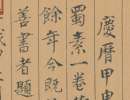 慶曆甲
蜀素一卷
餘年今既
善書者題